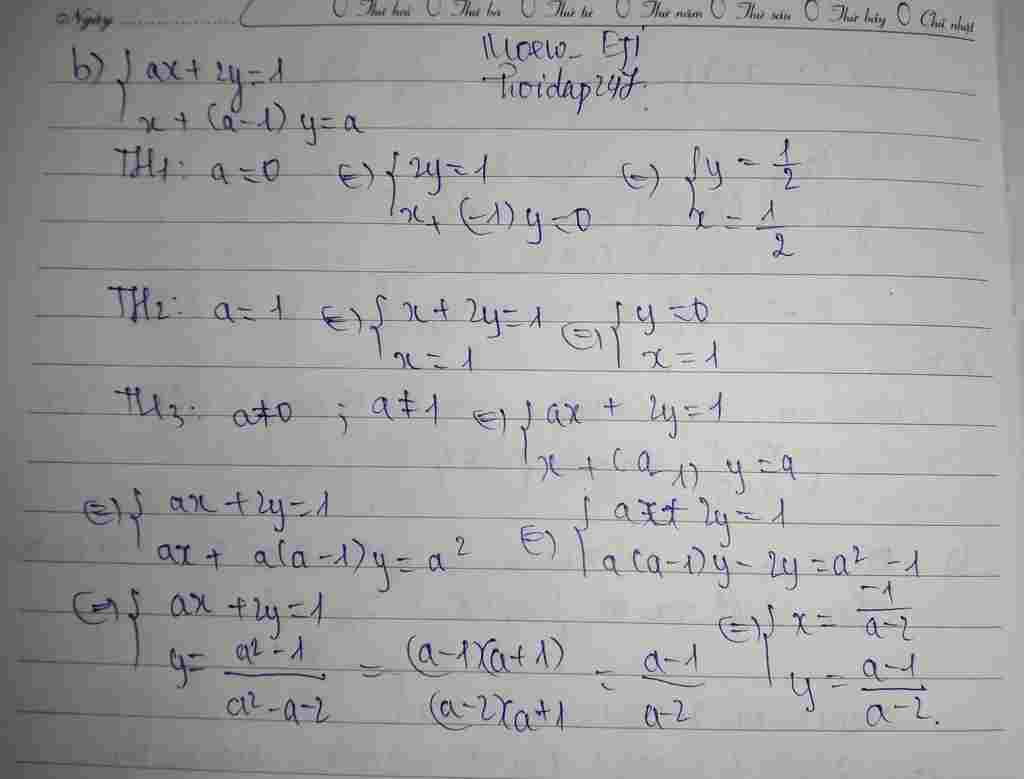 Ngày Thứ hai Thứ ba Thứ tư Thứ năm Thứ sáu Thứ bảy Chủ nhật
b) { ax + 2y = 1
x + (a-1) y = a
Troidap247.
TH1: a = 0 (=) { 2y = 1 (=) { y = 1/2
x + (-1) y = 0 x = 1/2
TH2: a = 1 (=) { x + 2y = 1 (=) { y = 0
x = 1 x = 1
TH3: a ≠ 0 ; a ≠ 1 (=) { ax + 2y = 1
x + (a-1) y = a
(=) { ax + 2y = 1 { ax + 2y = 1
ax + a(a-1)y = a² (=) a(a-1)y - 2y = a² - 1
(=) { ax + 2y = 1 (=) { x = -1/a-2
y = a²-1/a²-a-2 = (a-1)(a+1)/(a-2)(a+1 = a-1/a-2 y = a-1/a-2.